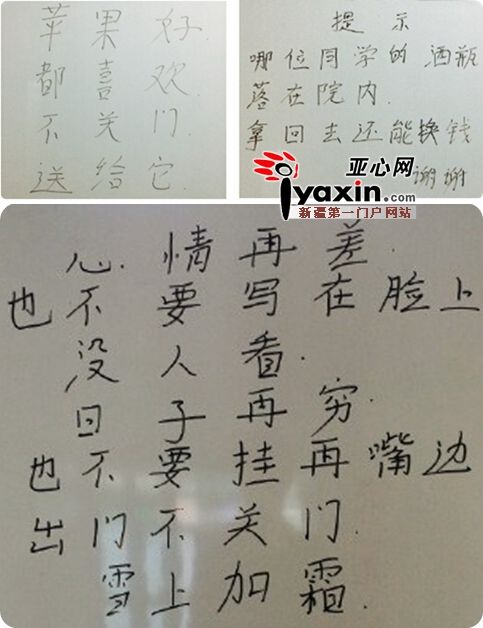 苹果好.
都喜欢.
不关门.
送给它
提示
哪位同学的酒瓶
落在院内.
拿回去还能换钱
谢谢
亚心网
iyaxin.com
新疆第一门户网站
心.情再差.
也不要写在脸上
没人看.
日子再穷.
也不要挂再嘴边
出门不关门.
雪上加霜.